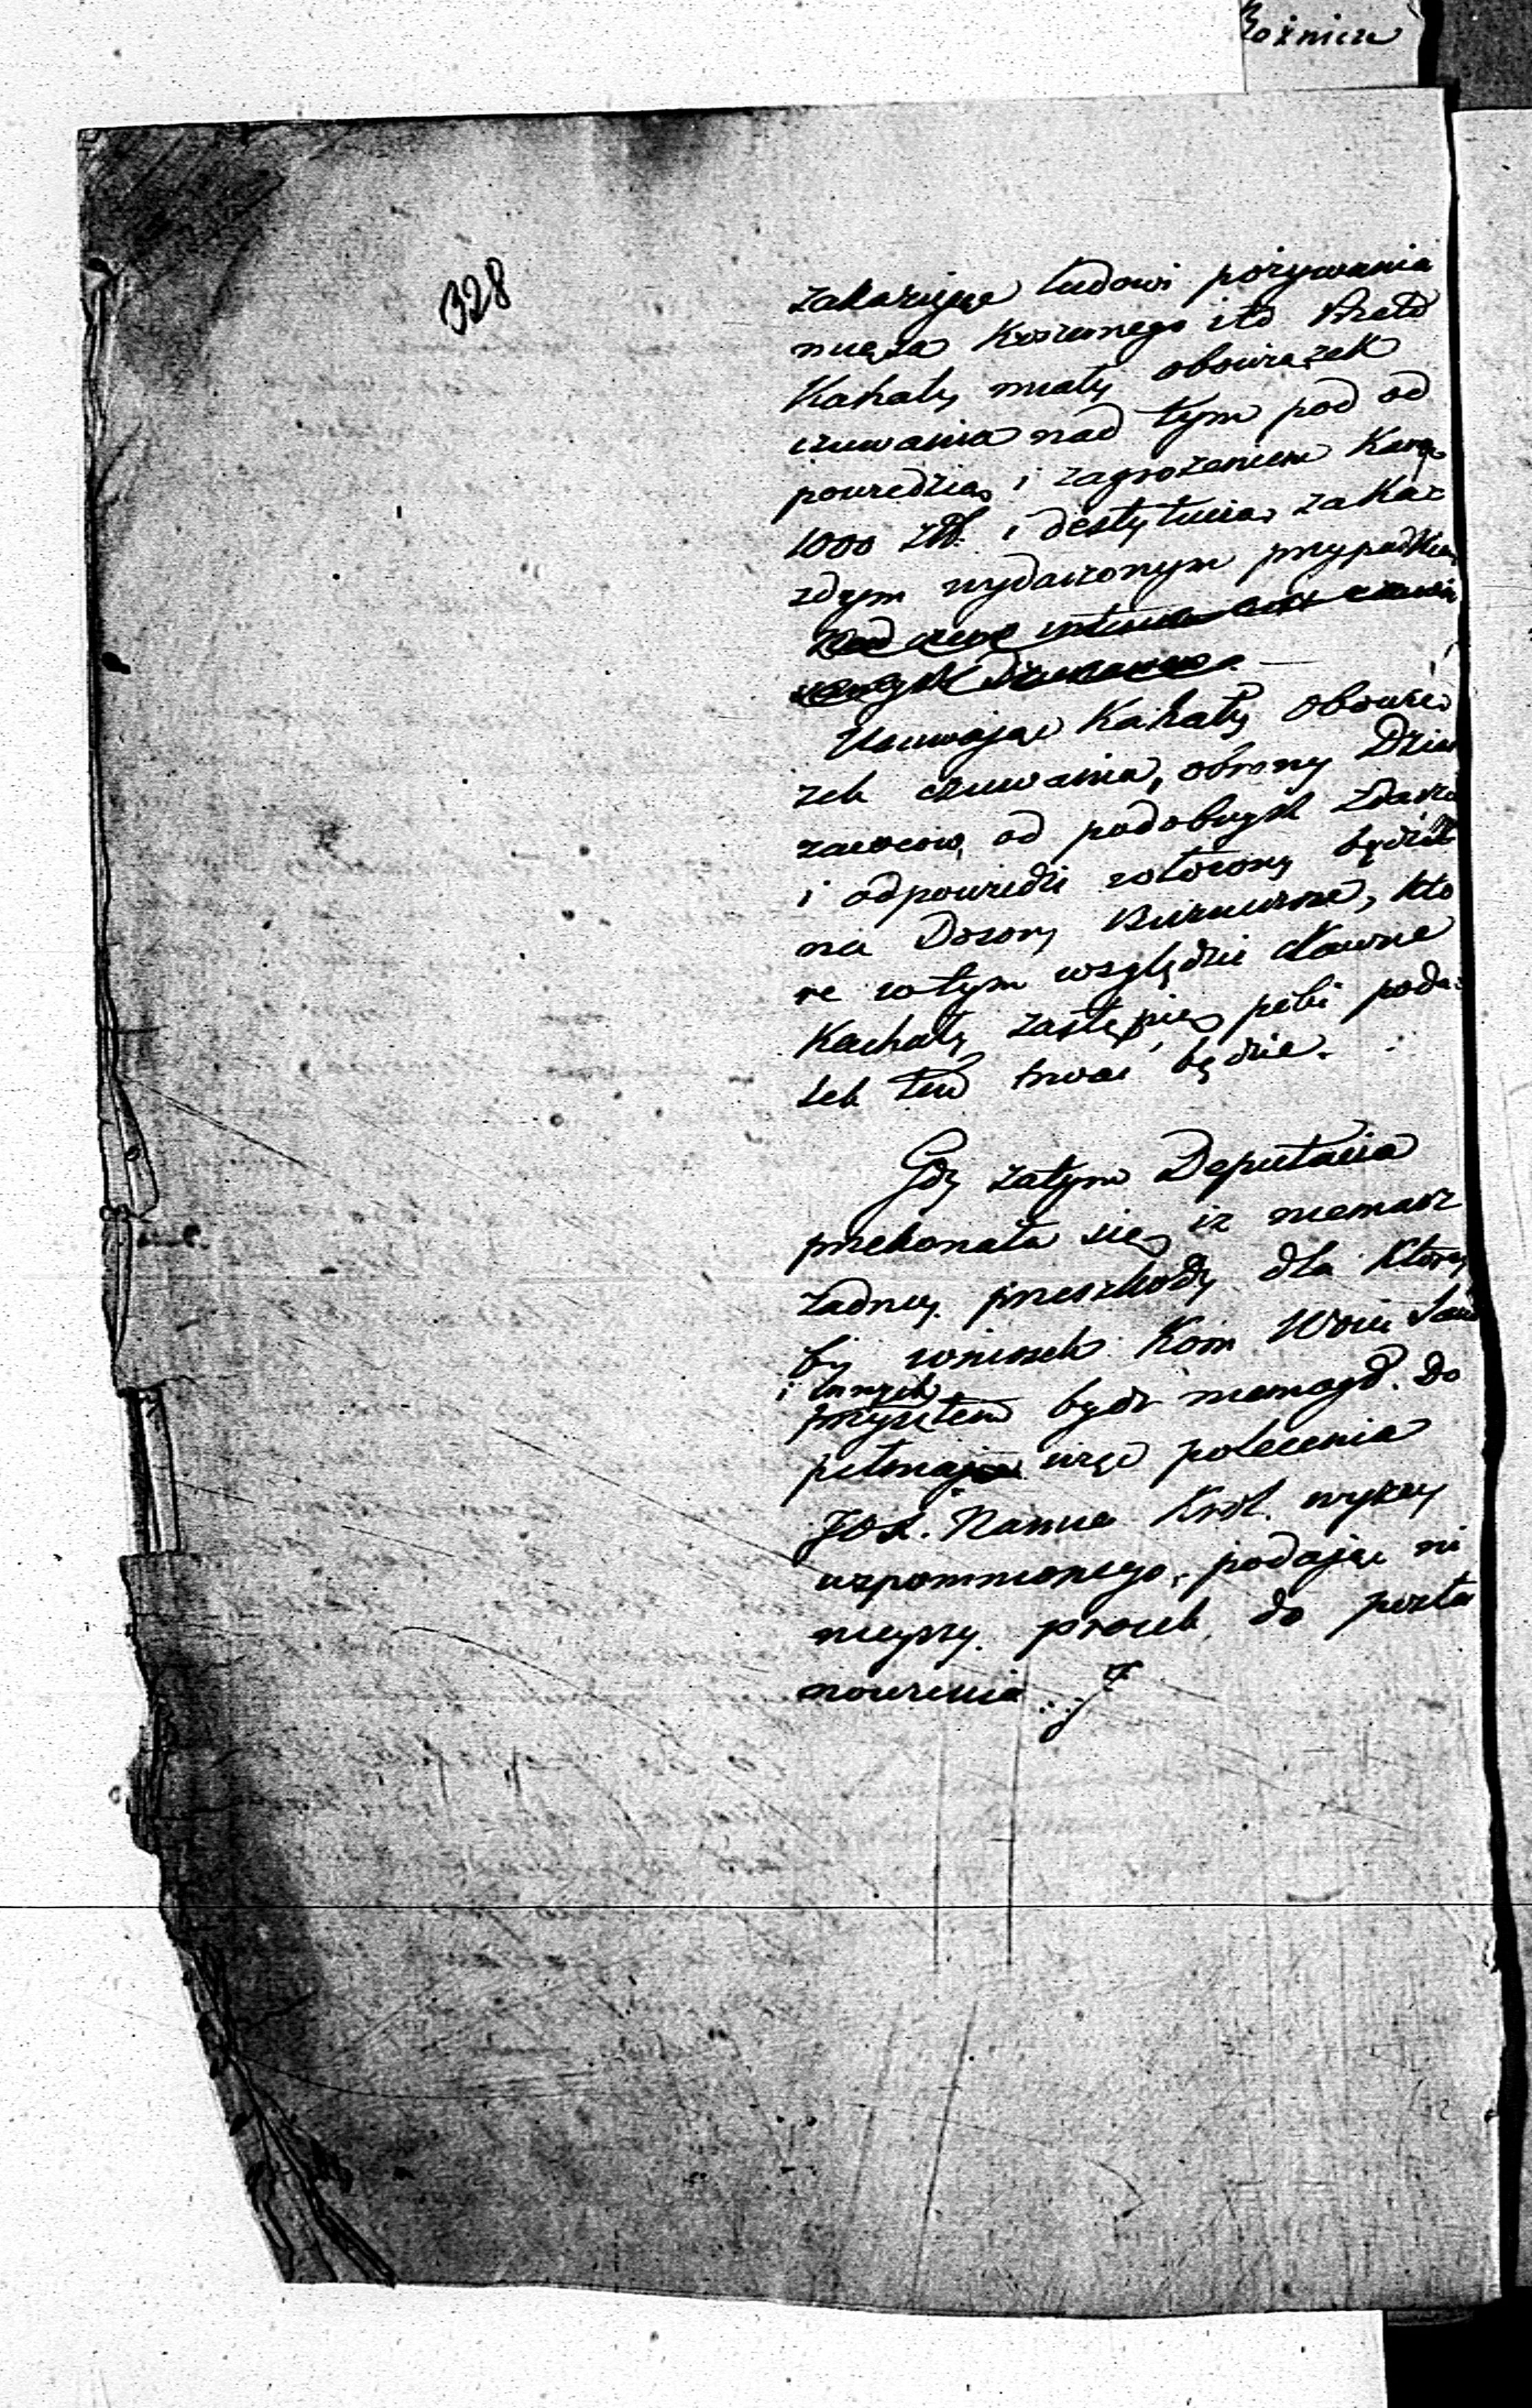 Rożnicu
328
zakazujące ludowi pożywania
mięsa Koszernego itd
Kahały miały obowiązek
czuwania nad tym pod od
powiedzią i zagrożeniem Karą
1000 zł. i destytucią za Ka-
zdym wydarzonym przypadkiem
Nad czem
Usuwając Kahały obowią
zek czuwania, obrony Dzier
zawcow, od podobnych Zdarzeń
i odpowiedzi włożony będzie
na Dozory Buznicze, kto
re w tym względzie dawne
Kachały zastąpią, jeżeli poda-
tek ten trwać będzie.
Gdy zatym Deputacia
przekonała się, iz niemasz
żadney przeszkody dla Ktorey
by wniosek Kom Woie
i innych
przyiętem bydz niemogł. Do
pełniając więc polecenia
JOX. Namie Krol. wyzey
wzpomnionego, podając ni
nieyszy proiek, do posta
nowienia